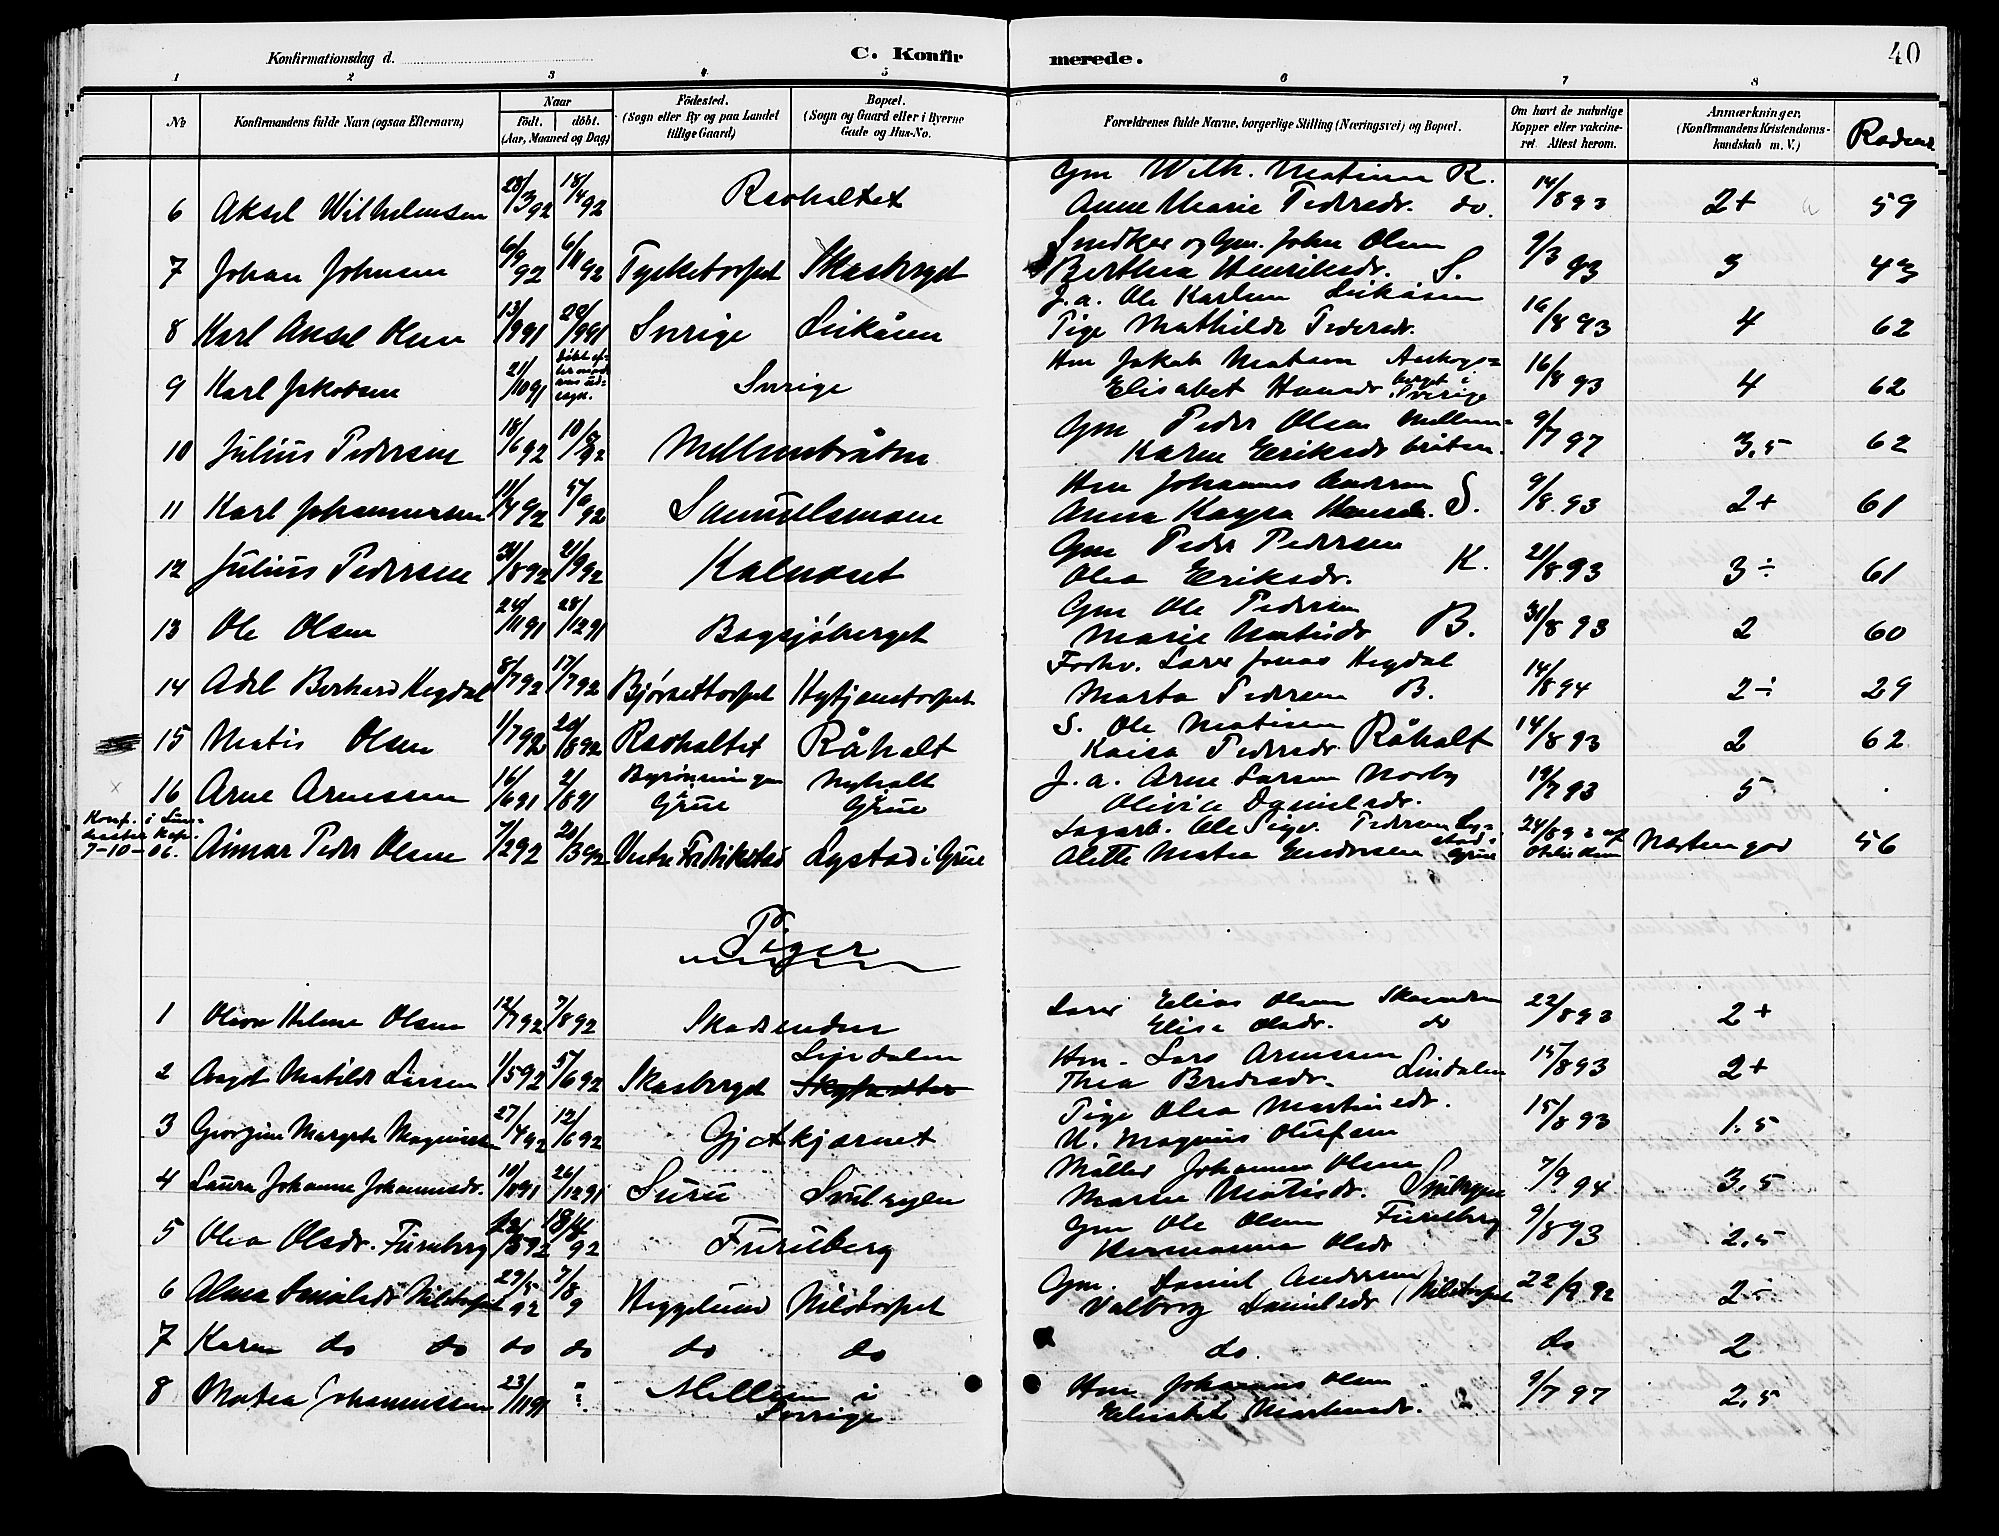 Konfirmationsdag d.
C. Konfirmerede.
40
1 2 3 4 5 6 7 8
№
Konfirmandens fulde Navn (ogsaa Efternavn)
Naar
født. døbt.
(Aar, Maaned og Dag)
Fødested.
(Sogn eller By og paa Landet
tillige Gaard)
Bopæl.
(Sogn og Gaard eller i Byerne
Gade og Hus-No.
Forældrenes fulde Navne, borgerlige Stilling (Næringsvei) og Bopæl.
Om havt de naturlige
Kopper eller vakcine-
ret. Attest herom.
Anmærkninger.
(Konfirmandens Kristendoms-
kundskab m. V.)
6 Aksel Wilhelmsen 28/3 92 18/4 92 Raahaltet Gm Wilh. Matisen R. 14/8 93 2+ 59
Anne Marie Pedersdr. do.
7 Johan Johnsen 6/9 92 6/11 92 Tysketorpet Skasberget Snedker og Gm. John Olsen 9/3 93 3 43
Berthea Henriksdr. S.
8 Karl Aksel Olsen 13/9 91 20/9 91 Sverige Leikåsen J.a. Ole Karlsen Leikåsen 16/8 93 4 62
Pige Mathilde Pedersdr.
9 Karl Jakobsen 21/10 91 Sverige Hm Jakob Matsen 16/8 93 4 62
Elisabet Hansdr. Sverige
10 Julius Pedersen 18/6 92 10/7 92 Mellembråten Gm Peder Olsen Mellem- 9/7 97 3,5 62
Karen Eriksdr bråten.
11 Karl Johannessen 11/4 92 5/9 92 Samuelsmoen Hm Johannes Andersen S. 9/8 93 2+ 61
Anna Kaysa Hansdr.
12 Julius Pedersen 31/8 92 21/9 92 Kalneset Gm Peder Pedersen K. 21/8 93 3÷ 61
Olea Eriksdr.
13 Ole Olsen 24/11 91 28/12 91 Bogsjøberget Gm Ole Pedersen B. 31/8 93 2 60
Marie Matisdr
14 Adel Berhard Hegdal 8/7 92 17/7 92 Bjørnetorpet Hytjenstorpet Forhv. Lærer Jonas Hegdal 14/8 94 2÷ 29
Marta Pedersen B.
15 Matis Olsen 1/7 92 20/8 92 Raahaltet Råhalt S. Ole Matisen 14/8 93 2 62
Kaisa Pedersdr. Råhalt
16 Arne Arnessen 16/6 91 2/8 91 Grue Nyhalt Grue J.a. Arne Larsen Norby 19/7 93 5
Olivia Danielsdr.
Konf. i
7-10-06. Ainar Peder Olsen 7/2 92 20/3 92 Vestre Fredrikstad Lystad i Grue Sagarb. Ole Sigv. Pedersen Ly- Næsten god 56
Olette Matea Endresen stad i Grue
Piger
1 Helene Olsen 12/7 92 7/8 92 Skadsenden Lærer Elias Olsen Skasenden 22/8 93 2+
Elise Olsdr. do
2 Aagot Matilde Larsen 1/5 92 5/6 92 Skasberget Lindalen Hm. Lars Arnessen 15/8 93 2+
Thea Bredesdr. Lindalen
3 Georgine Margrete 27/4 92 12/6 92 Gjetkjernet Pige Olea Martinsdr. 15/8 93 1.5
U. Magnus Olufsen
4 Laura Johanne Johannesdr. 10/8 91 26/12 91 Møller Johannes Olsen 7/9 94 3,5
Maren Matisdr.
5 Olea Olsdr. Furuberg Furuberg Gm Ole Olsen Furuberg 9/8 93 2,5
Hermanna Olsdr
6 Alma Danielsdr Nilstorpet 29/5 92 7/8 9 Heggelund Nilstorpet Gm. Daniel Andersen 22/9 92 2÷
Valborg Danielsdr (Nilstorpet
7 Karen do do do do do do do. do 2
8 Matea Johannessen 23/11 91 ? i Sverige Hm Johannes Olsen 9/7 97 2,5
Elisabet Martinsdr.